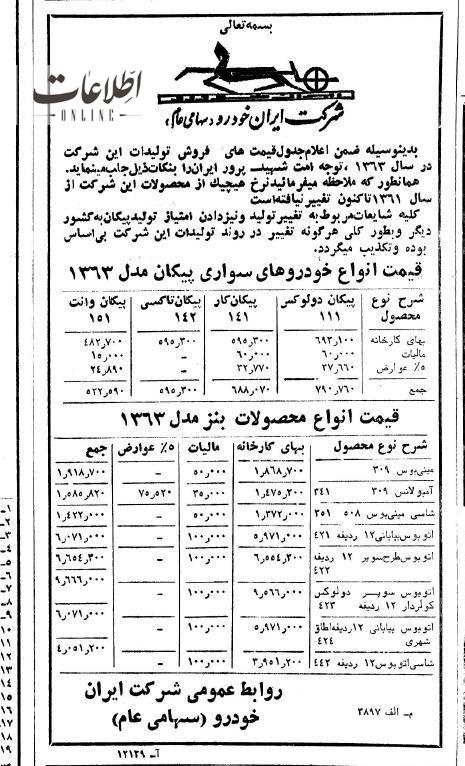 بسمه تعالی
اطلاعات
ONLINE
شرکت ایران خودرو «سهامی عام»
بدینوسیله ضمن اعلام جدول قیمت های فروش تولیدات این شرکت
در سال ۱۳۶۳، توجه امت شهید پرور ایران را بنکات ذیل جلب مینماید.
همانطور که ملاحظه میفرمائید نرخ هیچیک از محصولات این شرکت از
سال ۱۳۶۱ تاکنون تغییر نیافته است
کلیه شایعات مربوط به تغییر تولید و نیز دادن امتیاز تولید پیکان به کشور
دیگر و بطور کلی هرگونه تغییر در روند تولیدات این شرکت بی اساس
بوده و تکذیب میگردد.
قیمت انواع خودروهای سواری پیکان مدل ۱۳۶۳
شرح نوع محصول پیکان دولوکس ۱۱۱ پیکان کار ۱۴۱ پیکان تاکسی ۱۴۲ پیکان وانت ۱۵۱
بهای کارخانه ۶۹۳٫۱۰۰ ۵۹۵٫۳۰۰ ۵۹۵٫۳۰۰ ۴۸۲٫۷۰۰
مالیات ۶۰٫۰۰۰ ۶۰٫۰۰۰ – ۱۵٫۰۰۰
۵٪ عوارض ۳۷٫۶۶۰ ۳۲٫۷۷۰ – ۲۴٫۸۹۰
جمع ۷۹۰٫۷۶۰ ۶۸۸٫۰۷۰ ۵۹۵٫۳۰۰ ۵۲۲٫۵۹۰
قیمت انواع محصولات بنز مدل ۱۳۶۳
شرح نوع محصول بهای کارخانه مالیات ۵٪ عوارض جمع
مینی بوس ۳۰۹ ۱٫۸۶۸٫۷۰۰ ۵۰٫۰۰۰ – ۱٫۹۱۸٫۷۰۰
آمبولانس ۳۰۹ ۳۴۱ ۱٫۴۷۵٫۳۰۰ ۳۵٫۰۰۰ ۷۵٫۵۲۰ ۱٫۵۸۵٫۸۲۰
شاسی مینی بوس ۵۰۸ ۳۵۱ ۱٫۳۷۲٫۰۰۰ ۵۰٫۰۰۰ – ۱٫۴۲۲٫۰۰۰
اتوبوس بیابانی ۱۲ ردیفه ۴۲۱ ۵٫۹۷۱٫۰۰۰ ۱۰۰٫۰۰۰ – ۶٫۰۷۱٫۰۰۰
اتوبوس طرح سوپر ۱۲ ردیفه ۴۲۲ ۶٫۵۵۴٫۳۰۰ ۱۰۰٫۰۰۰ – ۶٫۶۵۴٫۳۰۰
اتوبوس سوپر دولوکس کولردار ۱۲ ردیفه ۴۲۳ ۹٫۵۶۶٫۰۰۰ ۱۰۰٫۰۰۰ – ۹٫۶۶۶٫۰۰۰
اتوبوس بیابانی ۱۲ ردیفه اطاق شهری ۴۲۴ ۵٫۹۷۱٫۰۰۰ ۱۰۰٫۰۰۰ – ۶٫۰۷۱٫۰۰۰
شاسی اتوبوس ۱۲ ردیفه ۴۴۲ ۳٫۹۵۱٫۲۰۰ ۱۰۰٫۰۰۰ – ۴٫۰۵۱٫۲۰۰
روابط عمومی شرکت ایران
خودرو (سهامی عام)
م- الف ۳۸۹۷
آ- ۱۲۱۲۹